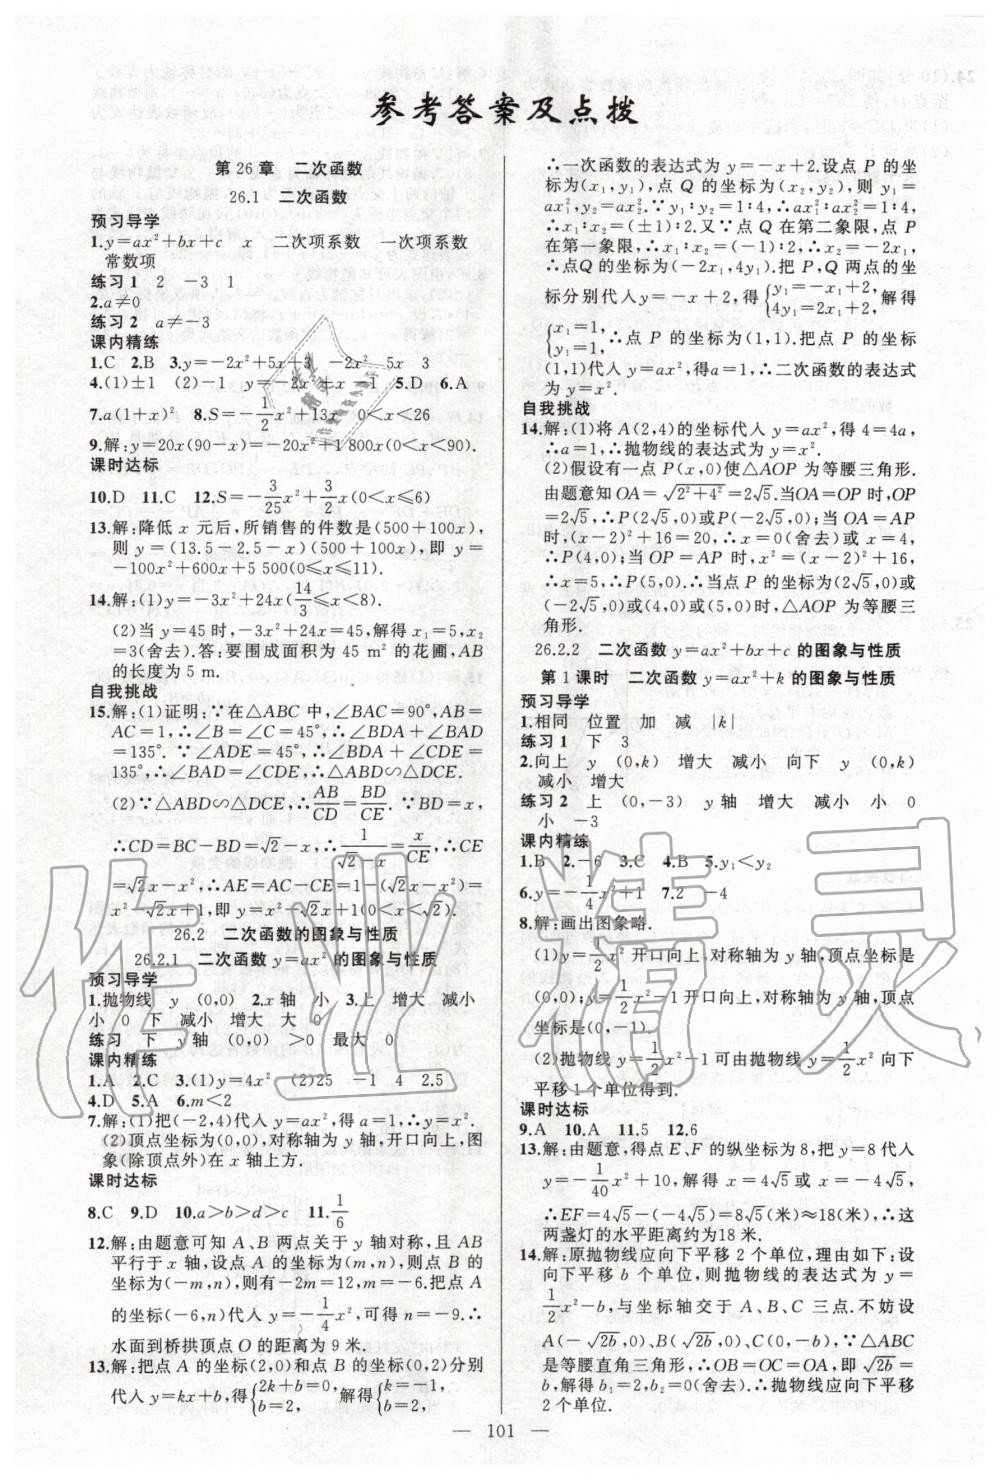 参考答案及点拨
第26章 二次函数
26.1 二次函数
预习导学
1.y=ax²+bx+c x 二次项系数 一次项系数
常数项
练习1 2 -3 1
2.a≠0
练习2 a≠-3
课内精练
1.C 2.B 3.y=-2x²+5x+3 -2x² 5x 3
4.(1)±1 (2)-1 y=-2x²+x-1 5.D 6.A
7.a(1+x)² 8.S=-1/2x²+13x 0<x<26
9.解:y=20x(90-x)=-20x²+1 800x(0<x<90).
课时达标
10.D 11.C 12.S=-3/25x²+3/2x(0<x≤6)
13.解:降低 x 元后,所销售的件数是(500+100x),
则 y=(13.5-2.5-x)(500+100x),即 y=
-100x²+600x+5 500(0≤x≤11).
14.解:(1)y=-3x²+24x(14/3≤x<8).
(2)当 y=45 时,-3x²+24x=45,解得 x₁=5,x₂
=3(舍去):答:要围成面积为 45 m² 的花圃,AB
的长度为 5 m.
自我挑战
15.解:(1)证明:∵在△ABC 中,∠BAC=90°,AB=
AC=1,∴∠B=∠C=45°,∴∠BAD+∠ADB=
135°.∵∠ADE=45°,∴∠BDA+∠CDE=
135°,∴∠BAD=∠CDE.
(2)∵△ABD∽△DCE,∴AB/CD=BD/CE.∵BD=x,
∴CD=BC-BD=√2-x,∴1/(√2-x)=x/CE,∴CE
=√2x-x²,∴AE=AC-CE=1-(√2x-x²)=
x²-√2x+1,即 y=x²-√2x+1(0<x<√2).
26.2 二次函数的图象与性质
26.2.1 二次函数 y=ax² 的图象与性质
预习导学
1.抛物线 y (0,0) 2.x 轴 小 3.上 增大 减小
小 0 下 减小 增大 大 0
练习 下 y 轴 (0,0) >0 最大 0
课内精练
1.A 2.C 3.(1)y=4x² (2)25 -1 4 2.5
4.D 5.A 6.m<2
7.解:(1)把(-2,4)代入 y=ax²,得 a=1,∴y=x².
(2)顶点坐标为(0,0),对称轴为 y 轴,开口向上,图
象(除顶点外)在 x 轴上方.
课时达标
8.C 9.D 10.a>b>d>c 11.1/6
12.解:由题意可知 A、B 两点关于 y 轴对称,且 AB
平行于 x 轴,设点 A 的坐标为(m,n),则点 B 的
坐标为(-m,n),则有-2m=12,m=-6.把点 A
的坐标(-6,n)代入 y=-1/4x²,可得 n=-9.∴
水面到桥拱顶点 O 的距离为 9 米.
13.解:把点 A 的坐标(2,0)和点 B 的坐标(0,2)分别
代入 y=kx+b,得{2k+b=0,b=2,解得{k=-1,b=2,
∴一次函数的表达式为 y=-x+2,设点 P 的坐
标为(x₁,y₁),点 Q 的坐标为(x₂,y₂),则 y₁=
ax₁²,y₂=ax₂².∵y₁:y₂=1:4,∴ax₁²:ax₂²=1:4,
∴x₁:x₂=(±1):2.又∵点 Q 在第二象限,点 P
在第一象限,∴x₁:x₂=(-1):2,∴x₂=-2x₁,
∴点Q 的坐标为(-2x₁,4y₁).把 P、Q 两点的坐
标分别代入 y=-x+2,得{y₁=-x₁+2,4y₁=2x₁+2,解得
{x₁=1,y₁=1,∴点 P 的坐标为(1,1).把点 P 的坐标
(1,1)代入 y=ax²,得a=1,∴二次函数的表达式
为 y=x².
自我挑战
14.解:(1)将 A(2,4)的坐标代入 y=ax²,得 4=4a,
∴a=1,∴抛物线的表达式为 y=x².
(2)假设有一点 P(x,0)使△AOP 为等腰三角形.
由题意知 OA=√(2²+4²)=2√5.当OA=OP 时,OP
=2√5,∴P(2√5,0)或P(-2√5,0);当 OA=AP
时,(x-2)²+16=20,∴x=0(舍去)或 x=4,
∴P(4,0);当 OP=AP 时,x²=(x-2)²+16,
∴x=5,∴P(5,0).∴当点 P 的坐标为(2√5,0)或
(-2√5,0)或(4,0)或(5,0)时,△AOP 为等腰三
角形.
26.2.2 二次函数 y=ax²+bx+c 的图象与性质
第 1 课时 二次函数 y=ax²+k 的图象与性质
预习导学
1.相同 位置 加 减 |k|
练习 1 下 3
2.向上 y (0,k) 增大 减小 向下 y (0,k)
减小 增大
练习 2 上 (0,-3) y 轴 增大 减小 小 0
小 -3
课内精练
1.B 2.-6 3.C 4.B 5.y₁<y₂
6.y=-1/4x²+1 7.2 -4
8.解:画出图象略.
(1)y=1/2x² 开口向上,对称轴为 y 轴,顶点坐标是
(0,0);y=1/2x²-1 开口向上,对称轴为 y 轴,顶点
坐标是(0,-1).
(2)抛物线 y=1/2x²-1 可由抛物线 y=1/2x² 向下
平移 1 个单位得到.
课时达标
9.A 10.A 11.5 12.6
13.解:由题意,得点 E、F 的纵坐标为 8,把 y=8 代入
y=-1/40x²+10,解得 x=4√5 或 x=-4√5,
∴EF=4√5-(-4√5)=8√5(米)≈18(米),∴这
两盏灯的水平距离约为18 米.
14.解:原抛物线应向下平移 2 个单位,理由如下:设
向下平移 b 个单位,则抛物线的表达式为 y=
1/2x²-b,与坐标轴交于 A、B、C 三点.不妨设
A(-√2b,0)、B(√2b,0)、C(0,-b),∵△ABC
是等腰直角三角形,∴OB=OC=OA,即√2b=
b,解得 b₁=2,b₂=0(舍去).∴抛物线应向下平移
2 个单位.
— 101 —
作业精灵